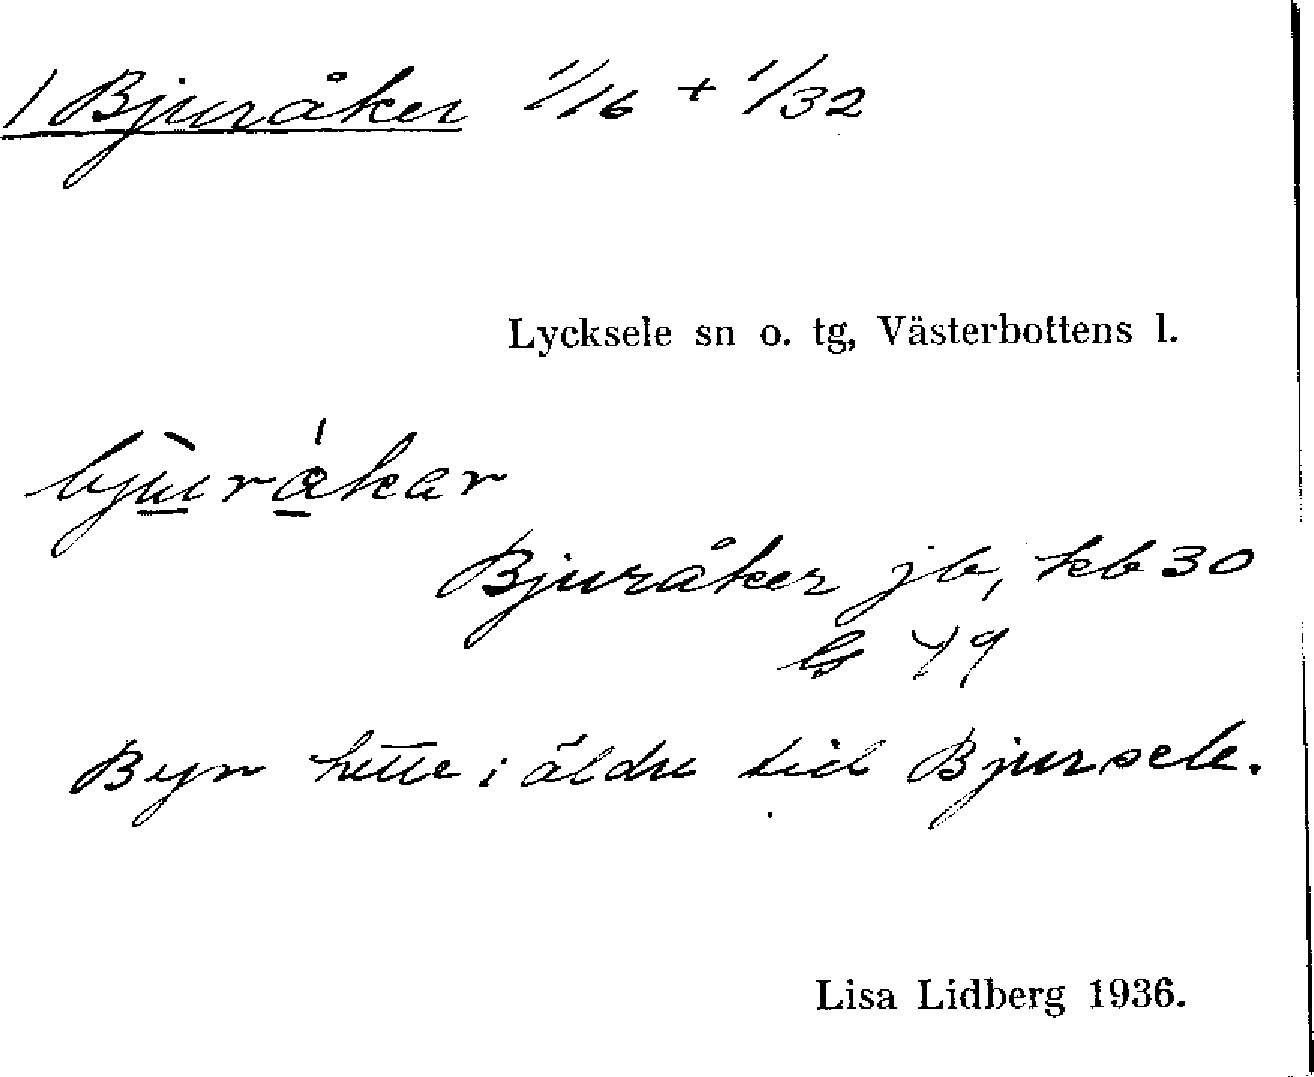 1 Bjuråker 1/16 + 1/32
Lycksele sn o. tg, Västerbottens l.
bjùråkar
Bjuråker jb, kb 30
49
Byn hette i äldre tid Bjursele.
Lisa Lidberg 1936.